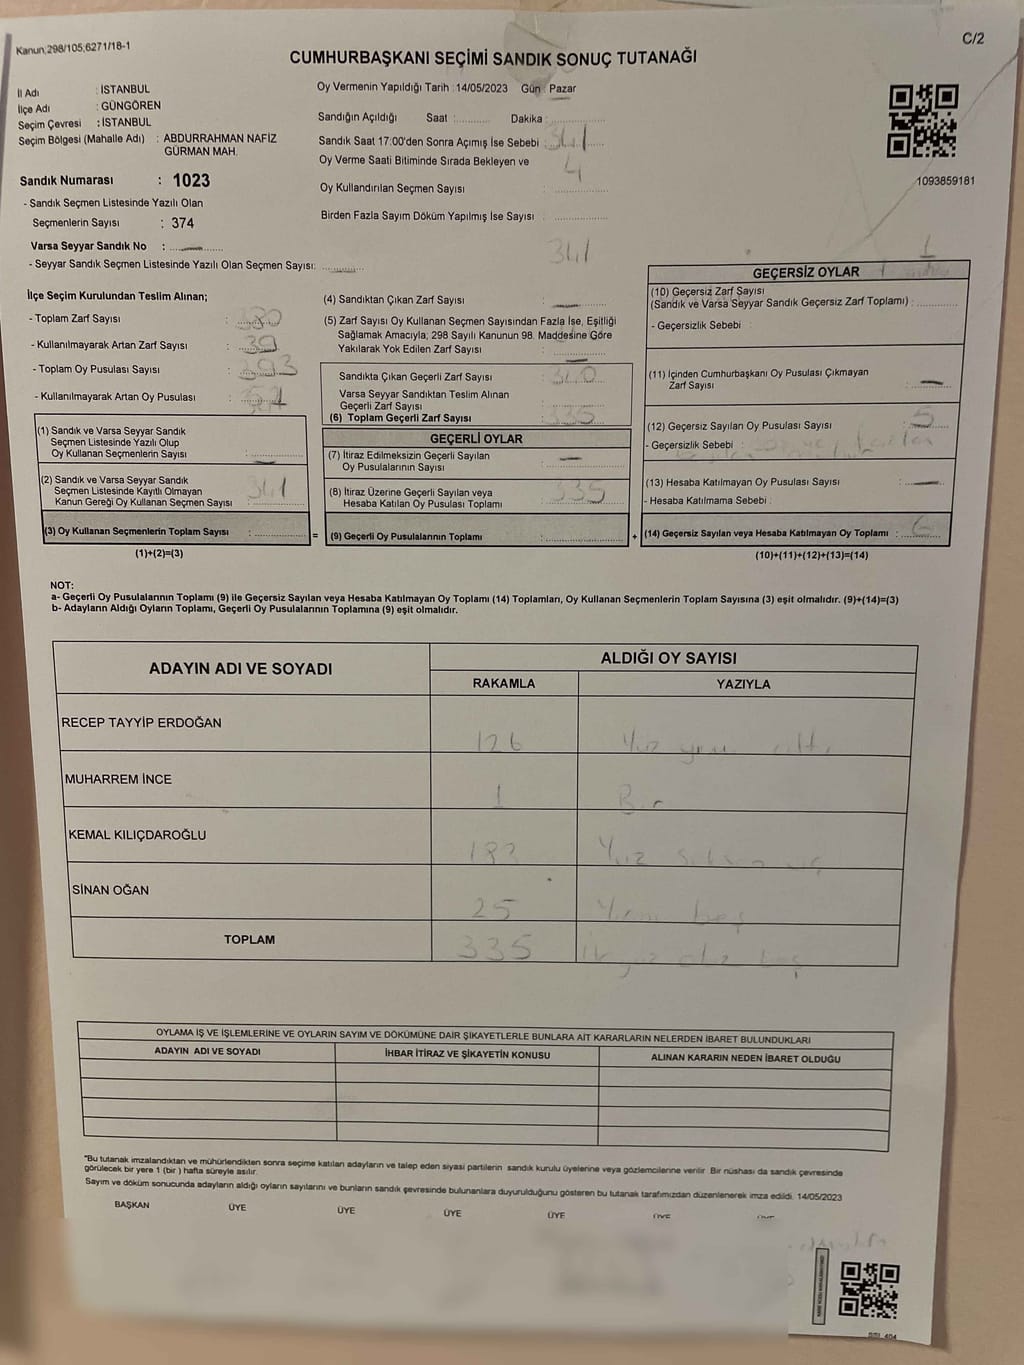 Kanun;298/105;6271/18-1
C/2
CUMHURBAŞKANI SEÇİMİ SANDIK SONUÇ TUTANAĞI
İl Adı : İSTANBUL
İlçe Adı : GÜNGÖREN
Seçim Çevresi : İSTANBUL
Seçim Bölgesi (Mahalle Adı) : ABDURRAHMAN NAFİZ
GÜRMAN MAH.
Sandık Numarası : 1023
- Sandık Seçmen Listesinde Yazılı Olan
Seçmenlerin Sayısı : 374
Varsa Seyyar Sandık No :
- Seyyar Sandık Seçmen Listesinde Yazılı Olan Seçmen Sayısı:
Oy Vermenin Yapıldığı Tarih : 14/05/2023 Gün : Pazar
Sandığın Açıldığı Saat : Dakika :
Sandık Saat 17:00'den Sonra Açımış İse Sebebi : 341
Oy Verme Saati Bitiminde Sırada Bekleyen ve 4
Oy Kullandırılan Seçmen Sayısı :
Birden Fazla Sayım Döküm Yapılmış İse Sayısı :
341
1093859181
İlçe Seçim Kurulundan Teslim Alınan;
- Toplam Zarf Sayısı : 380
- Kullanılmayarak Artan Zarf Sayısı : 39
- Toplam Oy Pusulası Sayısı : 393
- Kullanılmayarak Artan Oy Pusulası :
(1) Sandık ve Varsa Seyyar Sandık
Seçmen Listesinde Yazılı Olup
Oy Kullanan Seçmenlerin Sayısı :
(2) Sandık ve Varsa Seyyar Sandık
Seçmen Listesinde Kayıtlı Olmayan
Kanun Gereği Oy Kullanan Seçmen Sayısı : 341
(3) Oy Kullanan Seçmenlerin Toplam Sayısı :
(1)+(2)=(3)
(4) Sandıktan Çıkan Zarf Sayısı : —
(5) Zarf Sayısı Oy Kullanan Seçmen Sayısından Fazla İse, Eşitliği
Sağlamak Amacıyla, 298 Sayılı Kanunun 98. Maddesine Göre
Yakılarak Yok Edilen Zarf Sayısı :
Sandıkta Çıkan Geçerli Zarf Sayısı : 340
Varsa Seyyar Sandıktan Teslim Alınan
Geçerli Zarf Sayısı :
(6) Toplam Geçerli Zarf Sayısı : 335
GEÇERLİ OYLAR
(7) İtiraz Edilmeksizin Geçerli Sayılan : —
Oy Pusulalarının Sayısı
(8) İtiraz Üzerine Geçerli Sayılan veya : 335
Hesaba Katılan Oy Pusulası Toplamı
= (9) Geçerli Oy Pusulalarının Toplamı :
1
GEÇERSİZ OYLAR
(10) Geçersiz Zarf Sayısı
(Sandık ve Varsa Seyyar Sandık Geçersiz Zarf Toplamı) :
- Geçersizlik Sebebi :
(11) İçinden Cumhurbaşkanı Oy Pusulası Çıkmayan
Zarf Sayısı : —
(12) Geçersiz Sayılan Oy Pusulası Sayısı : 5
- Geçersizlik Sebebi :
(13) Hesaba Katılmayan Oy Pusulası Sayısı : —
- Hesaba Katılmama Sebebi :
+ (14) Geçersiz Sayılan veya Hesaba Katılmayan Oy Toplamı : 6
(10)+(11)+(12)+(13)=(14)
NOT:
a- Geçerli Oy Pusulalarının Toplamı (9) ile Geçersiz Sayılan veya Hesaba Katılmayan Oy Toplamı (14) Toplamları, Oy Kullanan Seçmenlerin Toplam Sayısına (3) eşit olmalıdır. (9)+(14)=(3)
b- Adayların Aldığı Oyların Toplamı, Geçerli Oy Pusulalarının Toplamına (9) eşit olmalıdır.
ADAYIN ADI VE SOYADI ALDIĞI OY SAYISI
RAKAMLA YAZIYLA
RECEP TAYYİP ERDOĞAN 126 Yüz yirmi altı
MUHARREM İNCE 1 Bir
KEMAL KILIÇDAROĞLU 183 Yüz seksen üç
SİNAN OĞAN 25 Yirmi beş
TOPLAM 335 yüz otuz beş
OYLAMA İŞ VE İŞLEMLERİNE VE OYLARIN SAYIM VE DÖKÜMÜNE DAİR ŞİKAYETLERLE BUNLARA AİT KARARLARIN NELERDEN İBARET BULUNDUKLARI
ADAYIN ADI VE SOYADI İHBAR İTİRAZ VE ŞİKAYETİN KONUSU ALINAN KARARIN NEDEN İBARET OLDUĞU
*Bu tutanak imzalandıktan ve mühürlendikten sonra seçime katılan adayların ve talep eden siyasi partilerin sandık kurulu üyelerine veya gözlemcilerine verilir. Bir nüshası da sandık çevresinde
görülecek bir yere 1 (bir) hafta süreyle asılır.
Sayım ve döküm sonucunda adayların aldığı oyların sayılarını ve bunların sandık çevresinde bulunanlara duyurulduğunu gösteren bu tutanak tarafımızdan düzenlenerek imza edildi. 14/05/2023
BAŞKAN ÜYE ÜYE ÜYE ÜYE